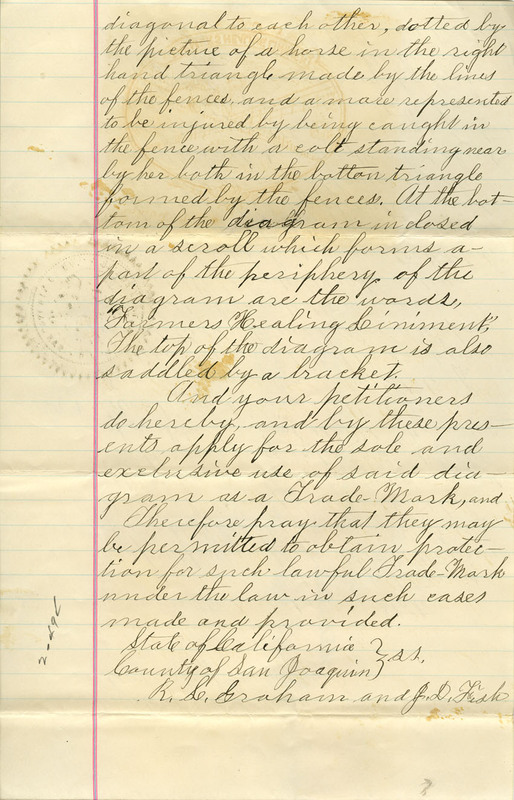 diagonal to each other, dotted by
the picture of a horse in the right
hand triangle made by the lines
of the fences, and a mare represented
to be injured by being caught in
the fence with a colt standing near
by her both in the botton triangle
formed by the fences. At the bot-
tom of the diagram inclosed
in a scroll which forms a-
part of the periphery of the
diagram are the words,
"Farmers Healing Liniment,"
The top of the diagram is also
saddled by a bracket.
And your petitioners
do hereby, and by these pres-
ents apply for the sole and
exclusive use of said dia-
gram as a Trade-Mark, and
Therefore pray that they may
be permitted to obtain protec-
tion for such lawful Trade-Mark
under the law in such cases
made and provided.
State of California } ss.
County of San Joaquin
R. L. Graham and J. D. Fisk